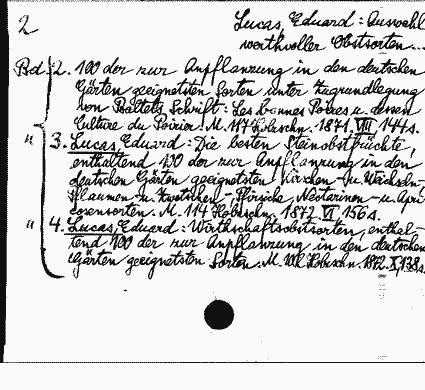 2 Lucas, Eduard: Auswahl
werthvoller Obstsorten...
Bd. 2. 100 der zur Anpflanzung in den deutschen
Gärten geeignetsten Sorten unter Zugrundlegung
von Baltets Schrift: Les bonnes Poires u. dessen
Culture du Poirier. M. 117 Holzschn. 1871. VIII 144 s.
" 3. Lucas, Eduard: Die besten Steinobstfrüchte,
enthaltend 100 der zur Anpflanzung in den
deutschen Gärten geeignetsten Kirschen- u. Wachseln-
Pflaumen u. Zwetschen, Pfirsiche, Nectarinen- u. Apri-
cosensorten. M. 114 Holzschn. 1872. VI 156 s.
" 4. Lucas, Eduard: Wirthschaftsobstsorten, enthal-
tend 100 der zur Anpflanzung in den deutschen
Gärten geeignetsten Sorten. M. Holzschn. 1872. X, 138 s.